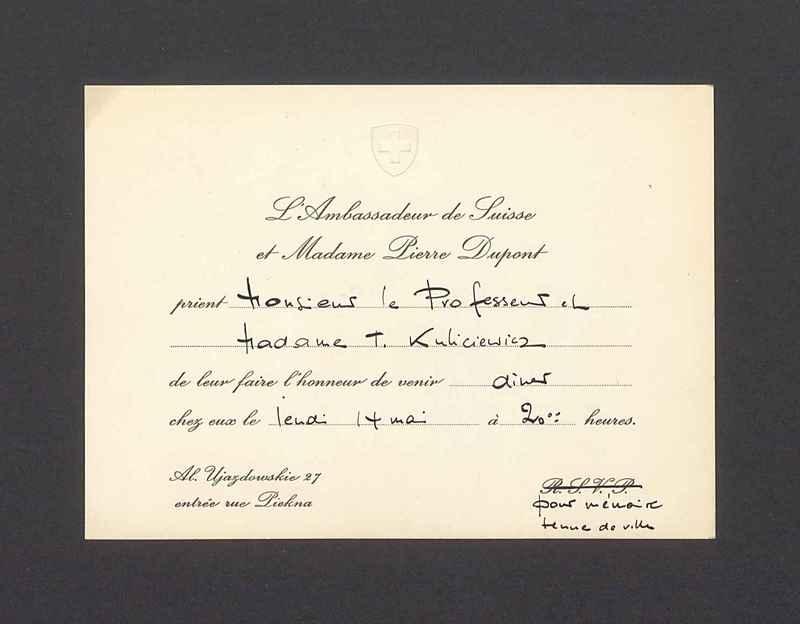 L'Ambassadeur de Suisse
et Madame Pierre Dupont
prient Monsieur le Professeur et
Madame T. Kuliciewicz
de leur faire l'honneur de venir dîner
chez eux le Jeudi 14 mai à 20°° heures.
Al. Ujazdowskie 27
entrée rue Piekna
R. S. V. P.
pour mémoire
tenue de ville